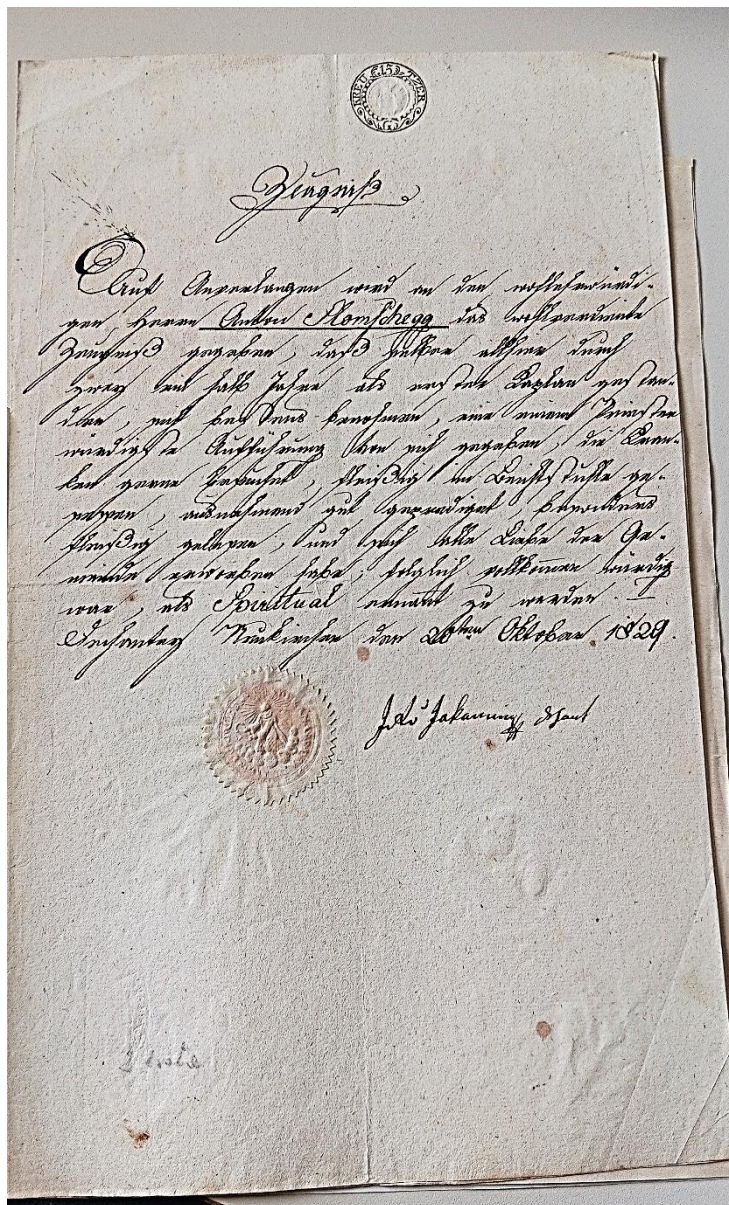 KREU 15 TZER
Zeugniß
Auf Anverlangen wird an den wohlehrwürdi-
gen, Herrn Anton Slomschegg das wohlverdiente
Zeugniß gegeben, daß selber allhier durch
zwey ein halb Jahre als erster Kaplan gestan-
den, sich bestens benohmen, eine einem Priester
würdigste Aufführung von sich gegeben, die Kran-
ken gerne besuchet, fleißig im Beichtstuhle ge-
sessen, ausnehmend gut geprediget, besonders
fleißig gelesen, und sich alle Liebe der Ge-
meinde erworben habe, folglich vollkommen würdig
war, als Spiritual ernannt zu werden.
Dechantey Neukirchen den 20ten Oktober 1829.
Dechant